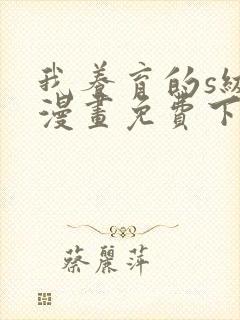 我養育的s級
漫畫免費下
蔡麗萍